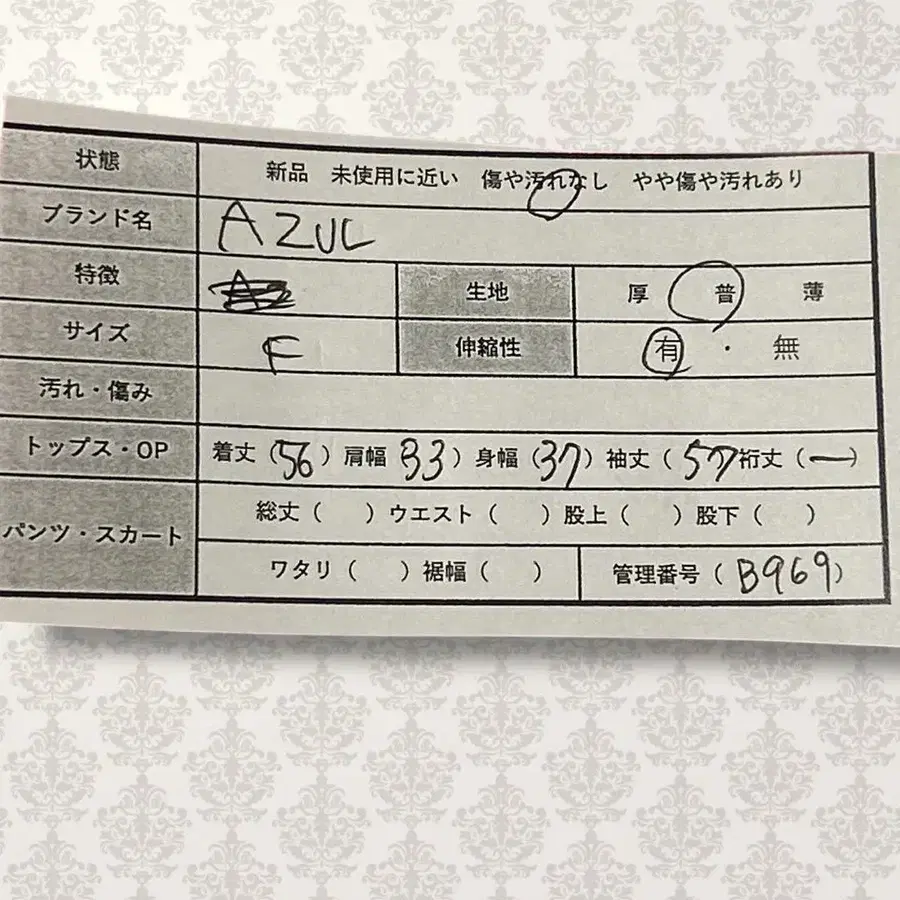 状態 新品 未使用に近い 傷や汚れなし やや傷や汚れあり
ブランド名 AZUL
特徴 生地 厚 普 薄
サイズ F 伸縮性 有 ・ 無
汚れ・傷み
トップス・OP 着丈(56) 肩幅 33) 身幅(37) 袖丈(57 裄丈(ー)
パンツ・スカート 総丈( )ウエスト( )股上( )股下( )
ワタリ( )裾幅( ) 管理番号(B969)